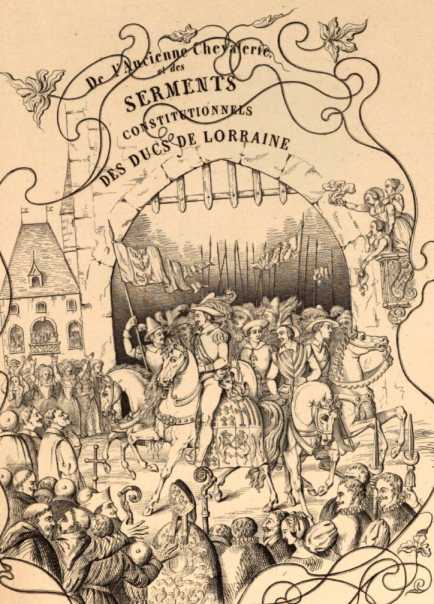 De l'Ancienne Chevalerie,
et des
SERMENTS
CONSTITUTIONNELS
DES DUCS DE LORRAINE